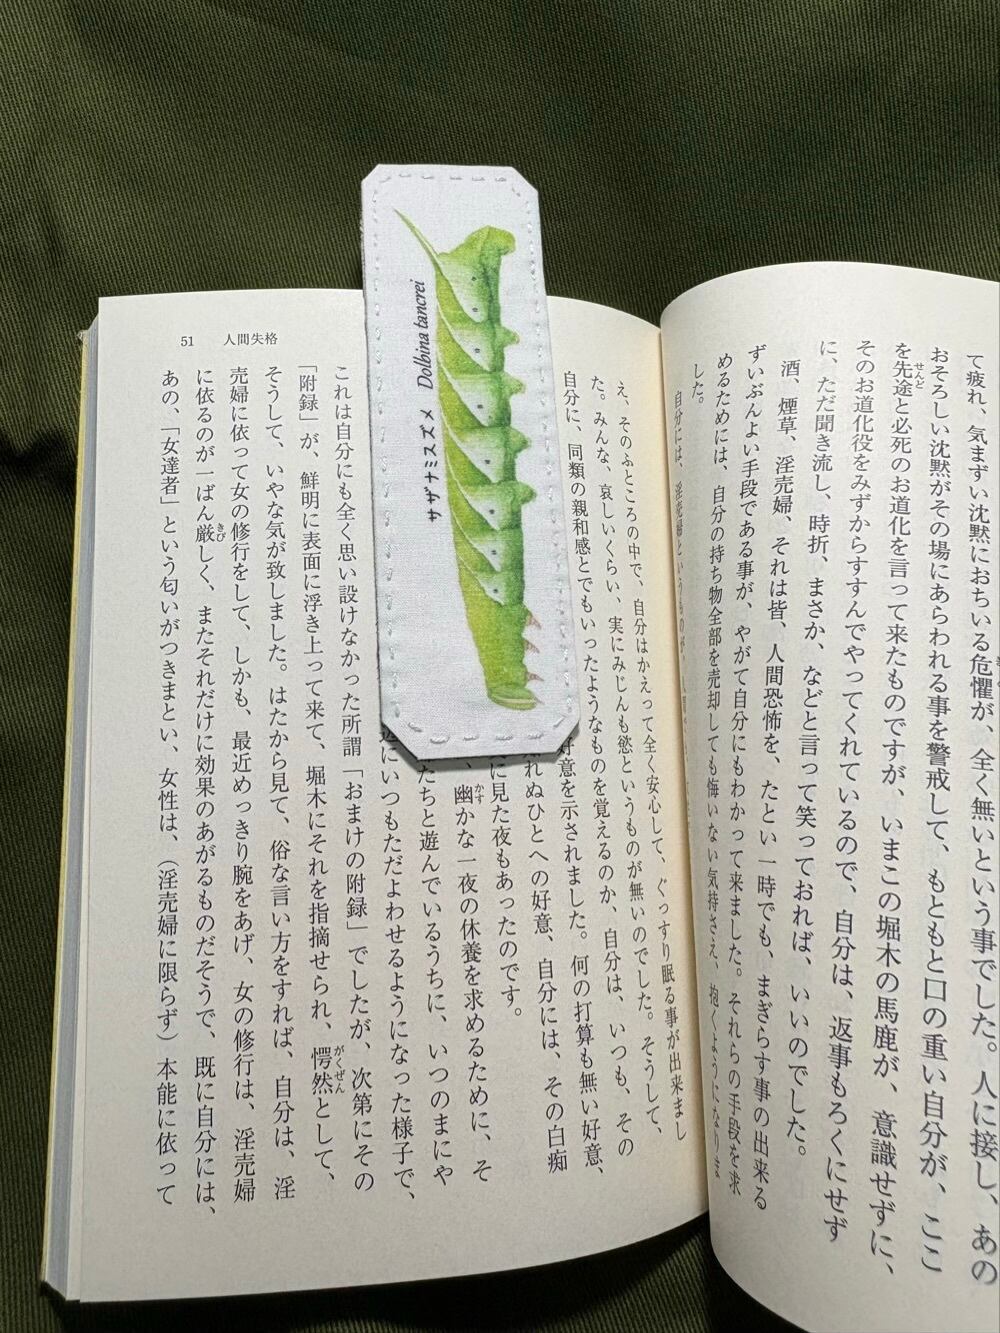 て疲れ、気まずい沈黙におちいる危懼が、全く無いという事でした。人に接し、あの
おそろしい沈黙がその場にあらわれる事を警戒して、もともと口の重い自分が、ここ
を先途と必死のお道化を言って来たものですが、いまこの堀木の馬鹿が、意識せずに、
そのお道化役をみずからすすんでやってくれているので、自分は、返事もろくにせず
に、ただ聞き流し、時折、まさか、などと言って笑っておれば、いいのでした。
酒、煙草、淫売婦、それは皆、人間恐怖を、たとい一時でも、まぎらす事の出来る
ずいぶんよい手段である事が、やがて自分にもわかって来ました。それらの手段を求
めるためには、自分の持ち物全部を売却しても悔いない気持さえ、抱くようになりま
した。
自分には、淫売婦というものが、
え、そのふところの中で、自分はかえって全く安心して、ぐっすり眠る事が出来まし
た。みんな、哀しいくらい、実にみじんも慾というものが無いのでした。そうして、
自分に、同類の親和感とでもいったようなものを覚えるのか、自分は、いつも、その
好意を示されました。何の打算も無い好意、
れぬひとへの好意、自分には、その白痴
に見た夜もあったのです。
、幽かな一夜の休養を求めるために、そ
たちと遊んでいるうちに、いつのまにや
にいつもただよわせるようになった様子で、
これは自分にも全く思い設けなかった所謂「おまけの附録」でしたが、次第にその
「附録」が、鮮明に表面に浮き上って来て、堀木にそれを指摘せられ、愕然として、
そうして、いやな気が致しました。はたから見て、俗な言い方をすれば、自分は、淫
売婦に依って女の修行をして、しかも、最近めっきり腕をあげ、女の修行は、淫売婦
に依るのが一ばん厳しく、またそれだけに効果のあがるものだそうで、既に自分には、
あの、「女達者」という匂いがつきまとい、女性は、（淫売婦に限らず）本能に依って
51 人間失格
サザナミスズメ Dolbina tancrei